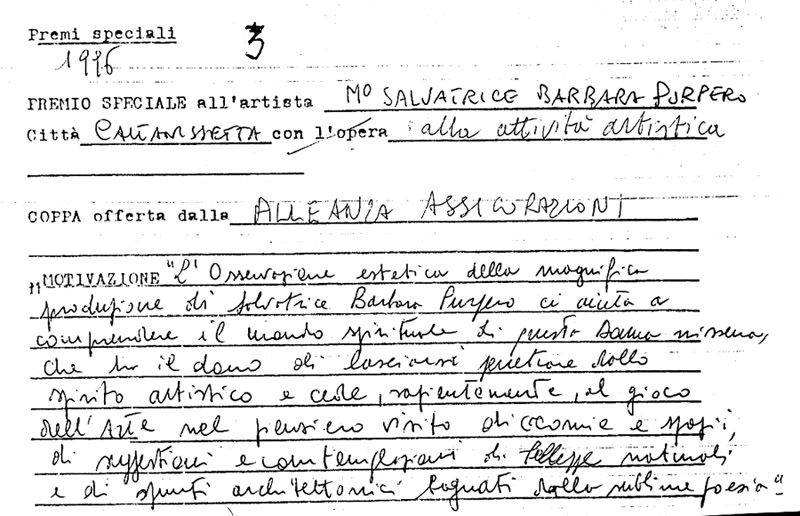 Premi speciali 3
1996
PREMIO SPECIALE all'artista Mº SALVATRICE BARBARA PURPERO
Città CALTANISSETTA con l'opera : alla attività artistica
COPPA offerta dalla ALLEANZA ASSICURAZIONI
"MOTIVAZIONE "L'Osservazione estetica della magnifica
produzione di Salvatrice Barbara Purpero ci aiuta a
comprendere il mondo spirituale di questa Dama nissena,
che ha il dono di lasciarsi penetrare dallo
spirito artistico e cede, sapientemente, al gioco
dell'Arte nel pensiero visito di cromie e spazi,
di suggestioni e contemplazioni di bellezze naturali
e di spunti architettonici sognati dalla sublime poesia"